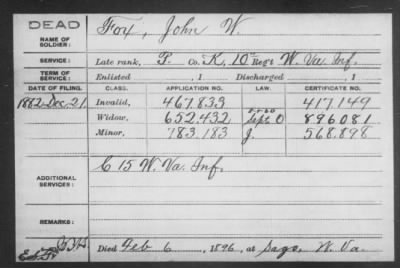 DEAD
NAME OF SOLDIER: Fox, John W.
SERVICE: Late rank, P. Co. K, 10" Reg't W. Va. Inf.
TERM OF SERVICE: Enlisted , 1 Discharged , 1
DATE OF FILING. CLASS. APPLICATION NO. LAW. CERTIFICATE NO.
1882 Dec. 21 Invalid, 467.833 417.149
Widow, 652.432 Sept. 896081
Minor, 783.183 J. 568.898
ADDITIONAL SERVICES: C 15 W. Va. Inf.
REMARKS:
Died Feb 6, 1896, at Sago, W. Va.